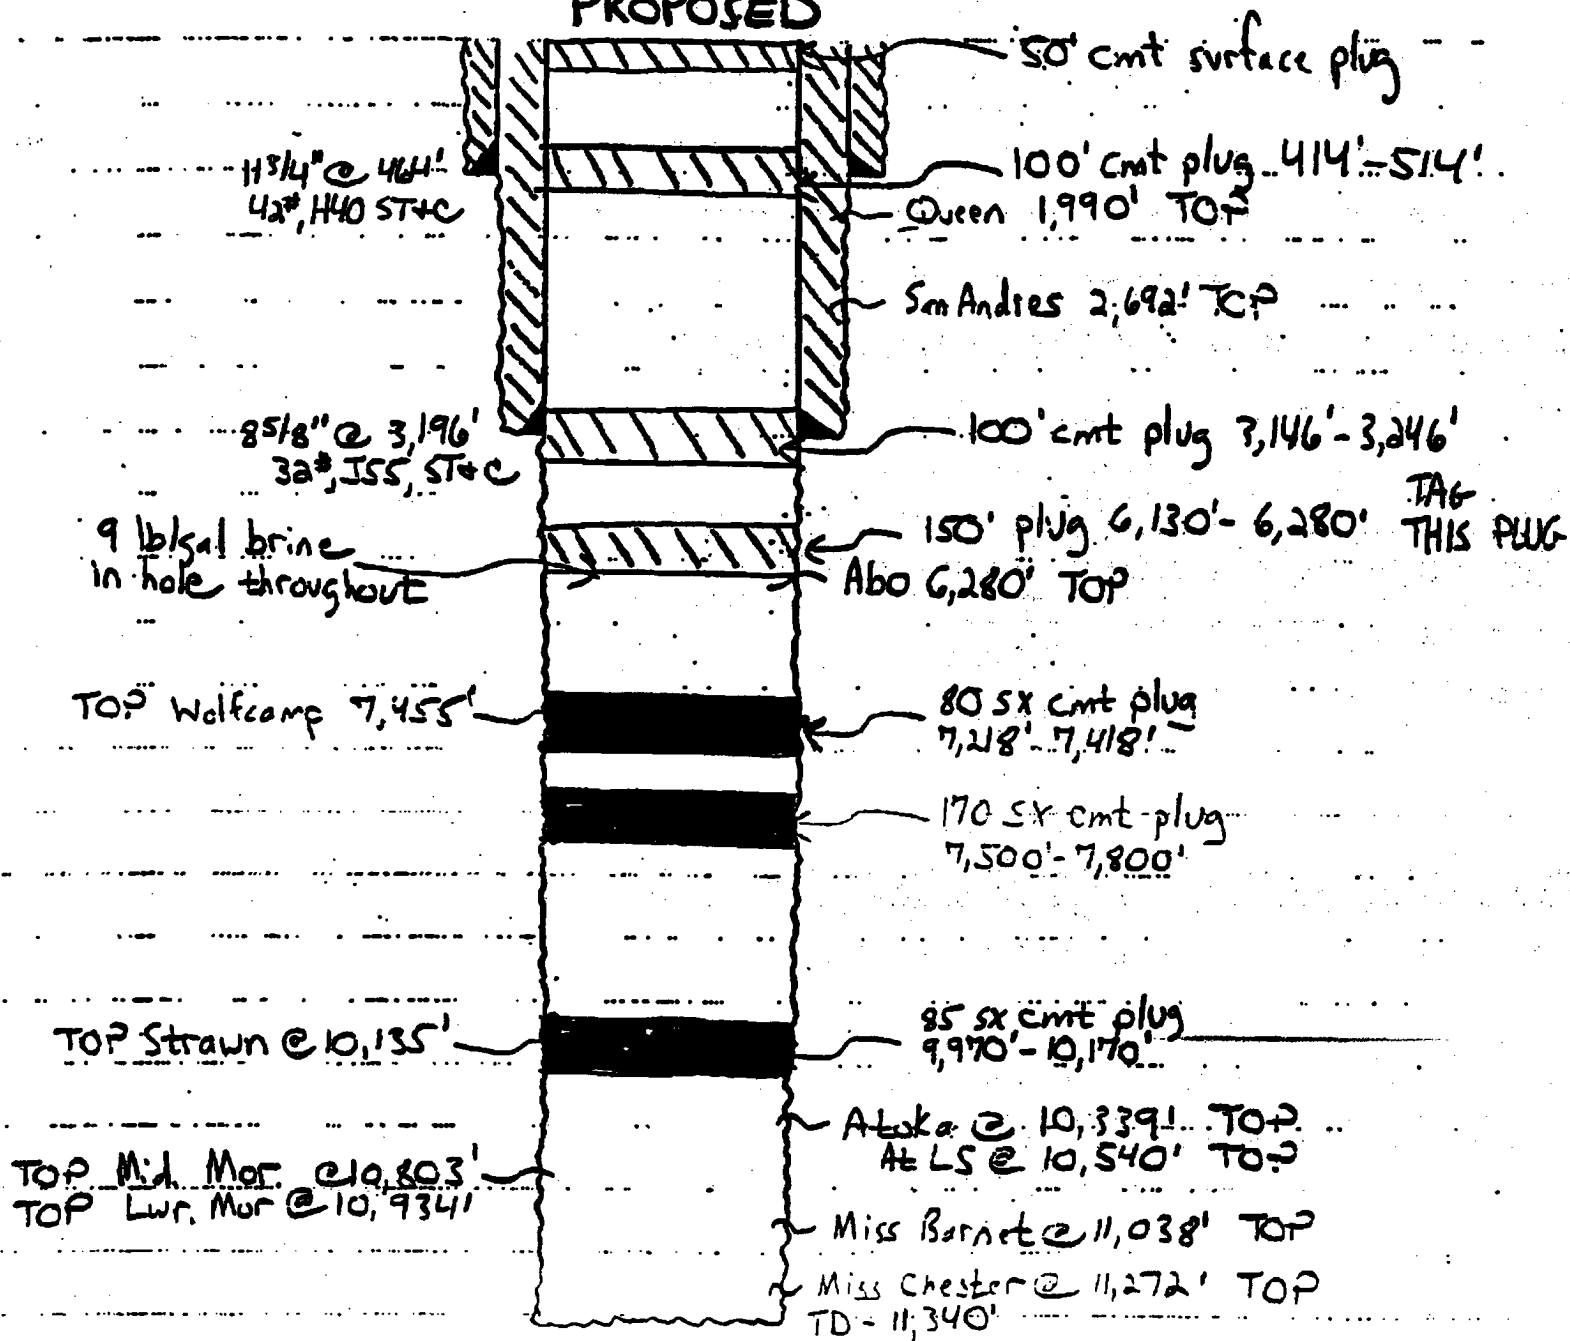 PROPOSED
50' cmt surface plug
11 3/4" @ 464'
42#, H40 ST+C
100' cmt plug 414'-514'
Queen 1,990' TOP
San Andres 2,692' TOP
8 5/8" @ 3,196'
32#, J55, ST+C
100' cmt plug 3,146'-3,246'
9 lb/gal brine
in hole throughout
150' plug 6,130'-6,280'
TAG
THIS PLUG
Abo 6,280' TOP
TOP Wolfcamp 7,455'
80 sx cmt plug
7,218'-7,418'
170 sx cmt plug
7,500'-7,800'
TOP Strawn @ 10,135'
85 sx cmt plug
9,970'-10,170'
Atoka @ 10,339' TOP
At LS @ 10,540' TOP
TOP Mid. Mor. @ 10,803'
TOP Lwr. Mor @ 10,934'
Miss Barnet @ 11,038' TOP
Miss Chester @ 11,272' TOP
TD - 11,340'